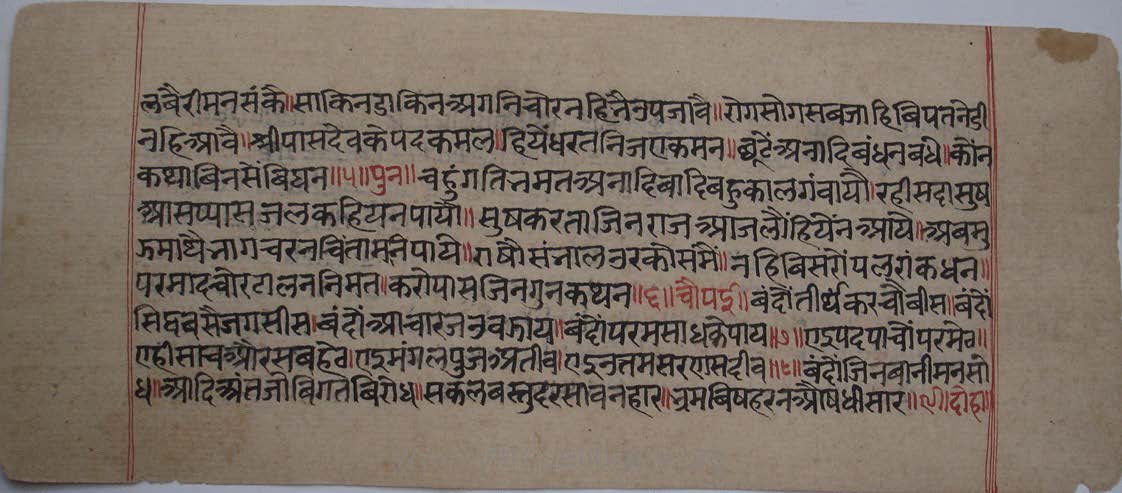 लबैरीमनसंकै॥साकिनडाकिनअगनिचोरनहिनैउपजावै॥रोगसोगसबजाहिबिपतनेडी
नहिआवै॥श्रीपासदेवकेपदकमल॥हियेंधरतनिजएकमन॥छूटैंअनादिबंधनबंधे॥कौंन
कथाबिनसेंबिघन॥५॥पुन॥चहुंगतिभमतअनादिबादिबहुकालगंवायौ॥रहीसदासुष
आसप्यासजलकहियनपायौ॥सुषकरताजिनराजआजलौंहियेंनआये॥अबमु
झमाथैभागचरनचिंतामनिपाये॥राषौसंभालउरकौसमैं॥नहिबिसरौंपलरांकधन॥
परमादचोरटालननिमत॥करोपासजिनगुनकथन॥६॥चौपई॥बंदौंतीर्थंकरचौबीस॥बंदौं
सिद्धबसैजगसीस॥बंदौंआचारजउवझाय॥बंदौंपरमसाधकेपाय॥७॥एइपदपाचौंपरमेठ॥
एहीसाचऔरसबहेठ॥एइमंगलपुजअतीव॥एइउतमसरणसदीव॥८॥बंदौंजिनबानीमनसो
ध॥आदिअंतजीबिगतबिरोध॥सकलबस्तुदरसावनहार॥भ्रमबिषहरनऔषिधीसार॥९॥दोहा॥